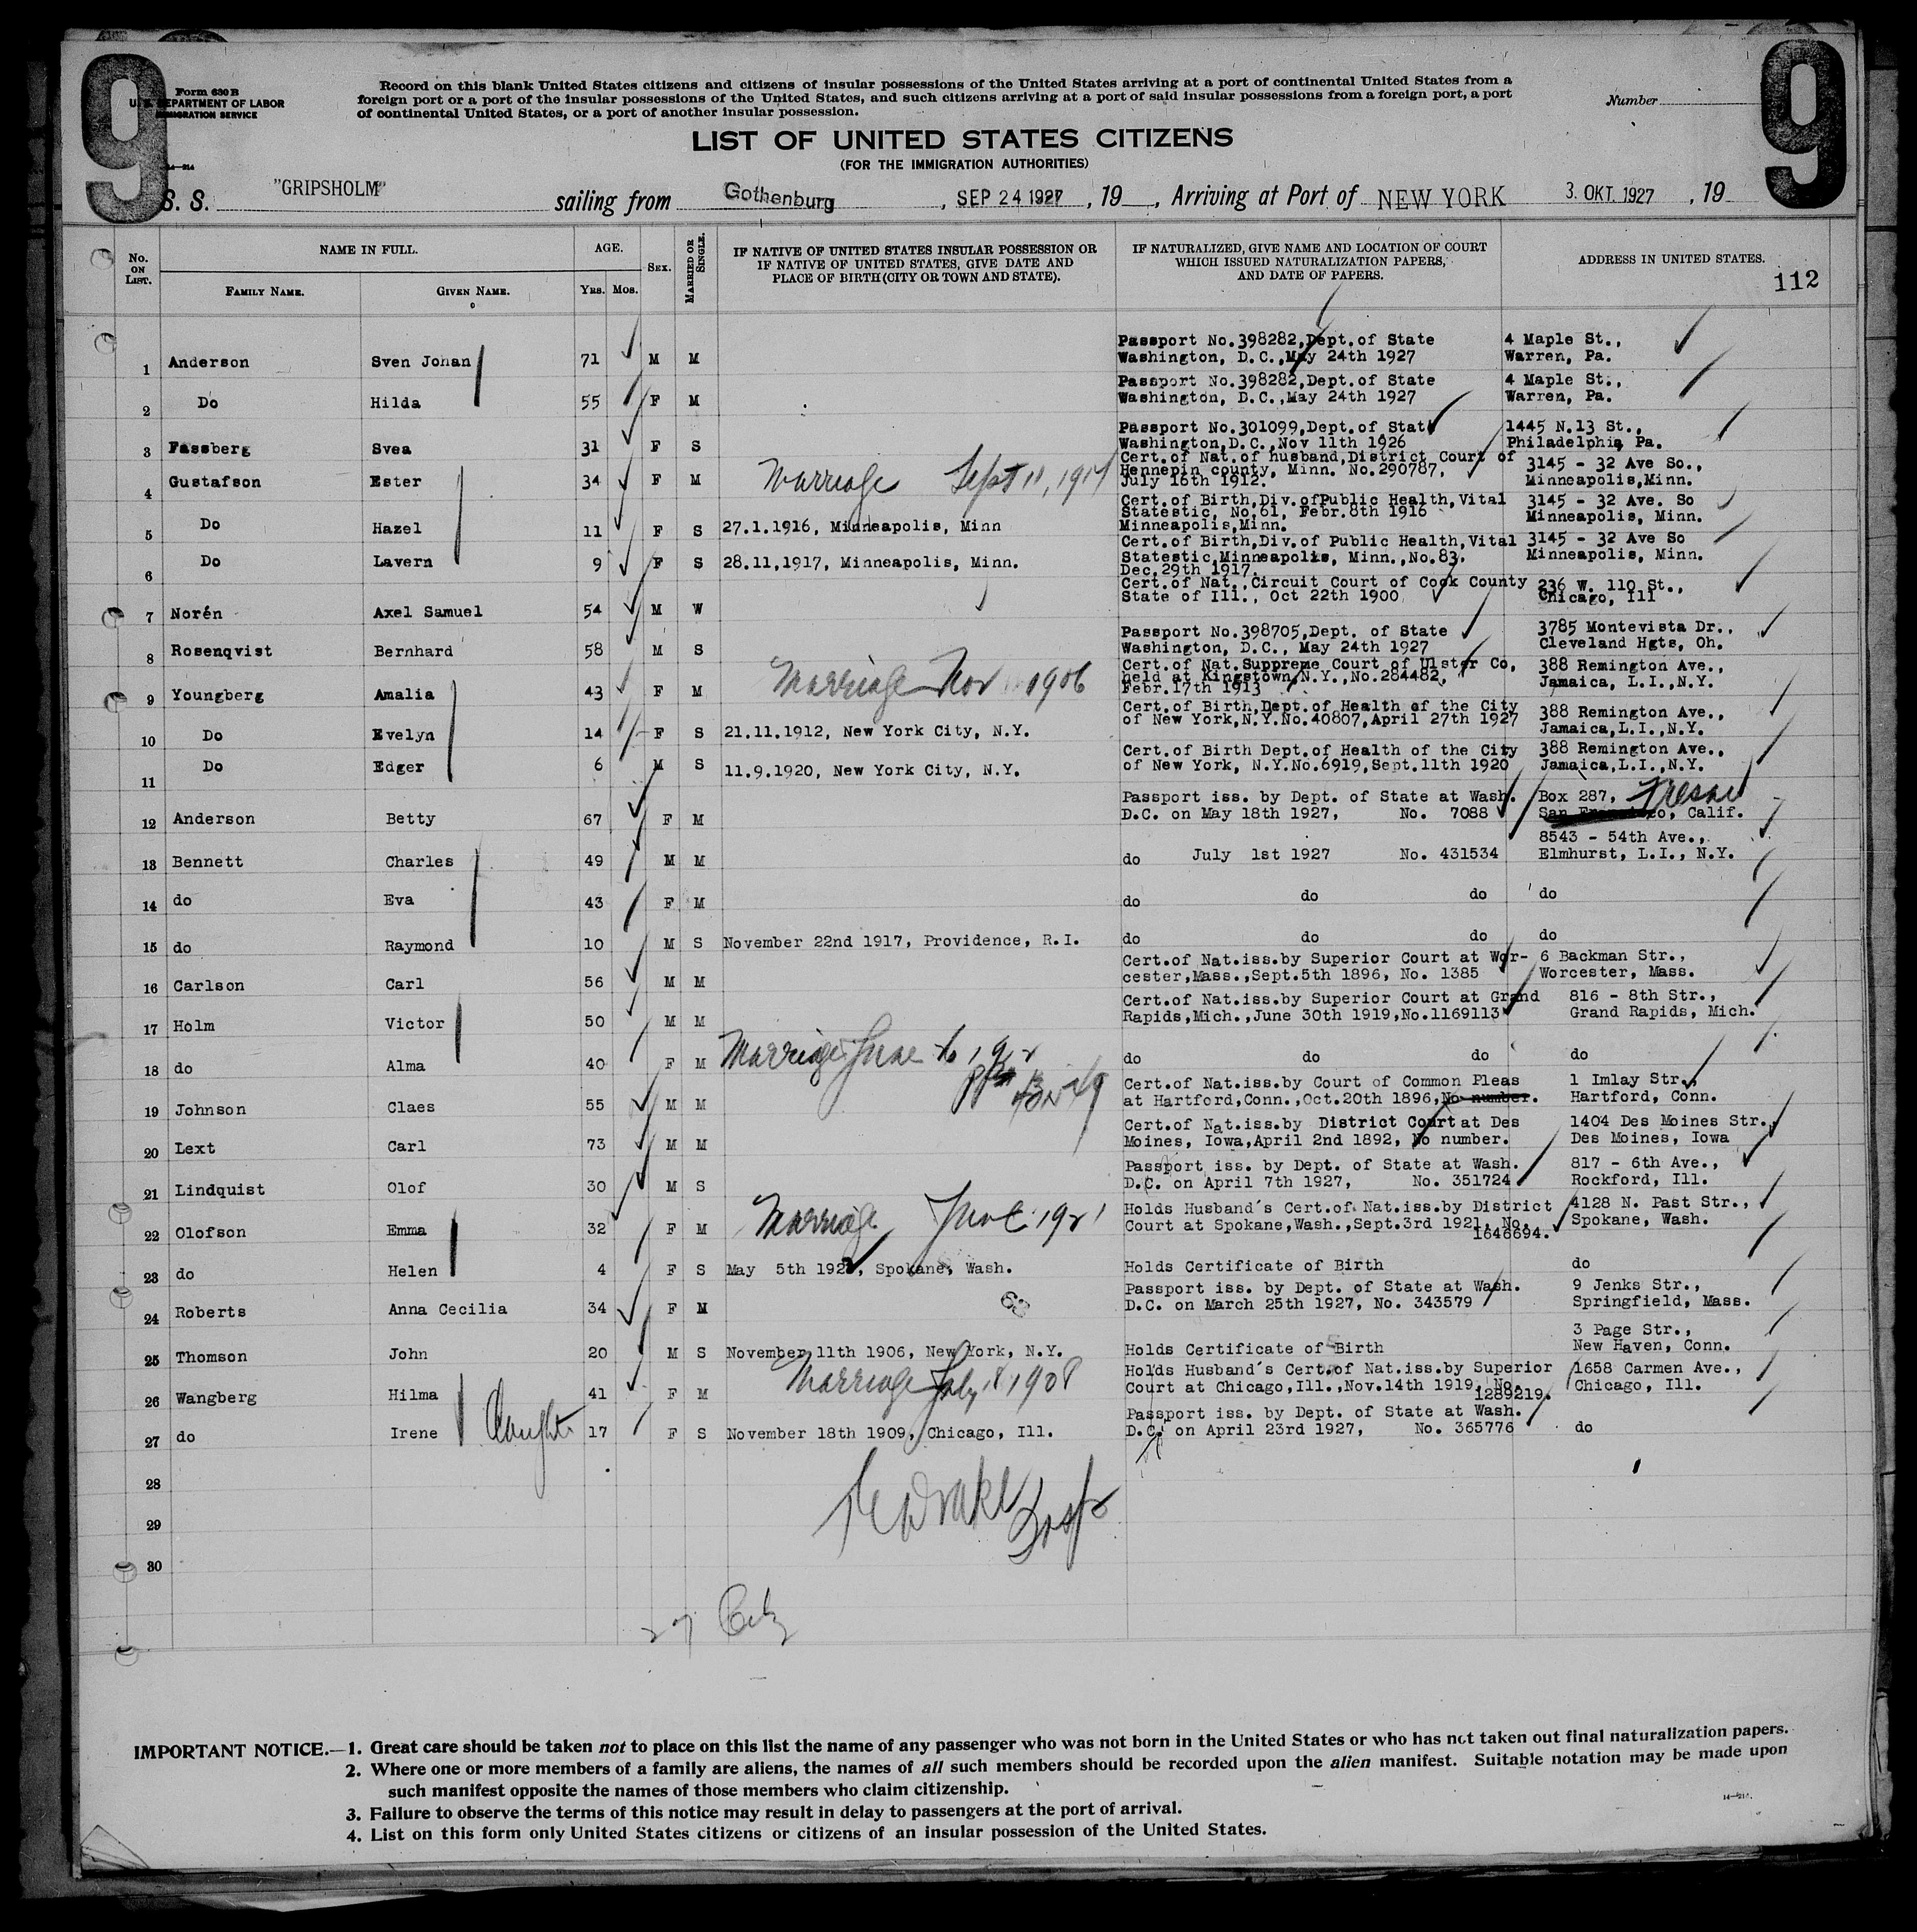 9
9
Form 630 B
U. S. DEPARTMENT OF LABOR
IMMIGRATION SERVICE
14—214
Record on this blank United States citizens and citizens of insular possessions of the United States arriving at a port of continental United States from a
foreign port or a port of the insular possessions of the United States, and such citizens arriving at a port of said insular possessions from a foreign port, a port
of continental United States, or a port of another insular possession.
Number
LIST OF UNITED STATES CITIZENS
(FOR THE IMMIGRATION AUTHORITIES)
S. S. "GRIPSHOLM" sailing from Gothenburg, SEP 24 1927, 19 , Arriving at Port of NEW YORK 3. OKT. 1927, 19
No. ON LIST. NAME IN FULL. AGE. SEX. MARRIED OR SINGLE. IF NATIVE OF UNITED STATES INSULAR POSSESSION OR IF NATIVE OF UNITED STATES, GIVE DATE AND PLACE OF BIRTH (CITY OR TOWN AND STATE). IF NATURALIZED, GIVE NAME AND LOCATION OF COURT WHICH ISSUED NATURALIZATION PAPERS, AND DATE OF PAPERS. ADDRESS IN UNITED STATES.
FAMILY NAME. GIVEN NAME. YRS. MOS.
112
1 Anderson Sven Johan 71 M M Passport No.398282,Dept.of State Washington, D.C.,May 24th 1927 4 Maple St., Warren, Pa.
2 Do Hilda 55 F M Passport No.398282,Dept.of State Washington, D.C.,May 24th 1927 4 Maple St., Warren, Pa.
3 Fassberg Svea 31 F S Passport No.301099,Dept.of State Washington,D.C.,Nov 11th 1926 1445 N.13 St., Philadelphia, Pa.
4 Gustafson Ester 34 F M Marriage Sept 11, Cert.of Nat.of husband,District Court of Hennepin county, Minn. No.290787, July 16th 1912. 3145 - 32 Ave So., Minneapolis,Minn.
5 Do Hazel 11 F S 27.1.1916, Minneapolis, Minn Cert.of Birth,Div.ofPublic Health,Vital Statestic, No.61, Febr.8th 1916 Minneapolis,Minn. 3145 - 32 Ave. So Minneapolis, Minn.
6 Do Lavern 9 F S 28.11,1917, Minneapolis, Minn. Cert.of Birth,Div.of Public Health,Vital Statestic,Minneapolis, Minn.,No.83. Dec.29th 1917. 3145 - 32 Ave So Minneapolis, Minn.
7 Norén Axel Samuel 54 M W Cert.of Nat.,Circuit Court of Cook County State of Ill., Oct 22th 1900 236 W. 110 St., Chicago, Ill
8 Rosenqvist Bernhard 58 M S Passport No.398705,Dept. of State Washington, D.C., May 24th 1927 3785 Montevista Dr., Cleveland Hgts, Oh.
9 Youngberg Amalia 43 F M Marriage Nov 1906 Cert.of Nat.Suppreme Court of Ulster Co, held at Kingstown,N.Y.,No.284482, Febr.17th 1913 388 Remington Ave., Jamaica, L.I.,N.Y.
10 Do Evelyn 14 F S 21.11.1912, New York City, N.Y. Cert.of Birth,Dept.of Health of the City of New York,N.Y.No.40807,April 27th 1927 388 Remington Ave., Jamaica,L.I.,N.Y.
11 Do Edger 6 M S 11.9.1920, New York City, N.Y. Cert.of Birth Dept.of Health of the City of New York, N.Y.No.6919,Sept.11th 1920 388 Remington Ave., Jamaica,L.I.,N.Y.
12 Anderson Betty 67 F M Passport iss. by Dept. of State at Wash. D.C. on May 18th 1927, No. 7088 Box 287, Fresno San Francisco, Calif.
13 Bennett Charles 49 M M do July 1st 1927 No. 431534 8543 - 54th Ave., Elmhurst, L.I., N.Y.
14 do Eva 43 F M do do do do
15 do Raymond 10 M S November 22nd 1917, Providence, R.I. do do do do
16 Carlson Carl 56 M M Cert.of Nat.iss.by Superior Court at Wor- cester,Mass.,Sept.5th 1896, No. 1385 6 Backman Str., Worcester, Mass.
17 Holm Victor 50 M M Cert.of Nat.iss.by Superior Court at Grand Rapids,Mich.,June 30th 1919,No.1169113 816 - 8th Str., Grand Rapids, Mich.
18 do Alma 40 F M Marriage June do do do do
19 Johnson Claes 55 M M Cert.of Nat.iss.by Court of Common Pleas at Hartford,Conn.,Oct.20th 1896,No number. 1 Imlay Str., Hartford, Conn.
20 Lext Carl 73 M M Cert.of Nat.iss.by District Court at Des Moines, Iowa,April 2nd 1892, No number. 1404 Des Moines Str., Des Moines, Iowa
21 Lindquist Olof 30 M S Passport iss. by Dept. of State at Wash. D.C. on April 7th 1927, No. 351724 817 - 6th Ave., Rockford, Ill.
22 Olofson Emma 32 F M Marriage June 1921 Holds Husband's Cert.of Nat.iss.by District Court at Spokane,Wash.,Sept.3rd 1921, No. 1646694. 4128 N. Past Str., Spokane, Wash.
23 do Helen 4 F S May 5th 192, Spokane, Wash. Holds Certificate of Birth do
24 Roberts Anna Cecilia 34 F M 63 Passport iss. by Dept. of State at Wash. D.C. on March 25th 1927, No. 343579 9 Jenks Str., Springfield, Mass.
25 Thomson John 20 M S November 11th 1906, New York, N.Y. Holds Certificate of Birth 3 Page Str., New Haven, Conn.
26 Wangberg Hilma 41 F M Marriage July 18 1908 Holds Husband's Cert.of Nat.iss.by Superior Court at Chicago,Ill.,Nov.14th 1919, No. 1289219. 1658 Carmen Ave., Chicago, Ill.
27 do Irene Daught 17 F S November 18th 1909, Chicago, Ill. Passport iss. by Dept. of State at Wash. D.C. on April 23rd 1927, No. 365776 do
28
29
30
27
IMPORTANT NOTICE.—1. Great care should be taken not to place on this list the name of any passenger who was not born in the United States or who has not taken out final naturalization papers.
2. Where one or more members of a family are aliens, the names of all such members should be recorded upon the alien manifest. Suitable notation may be made upon
such manifest opposite the names of those members who claim citizenship.
3. Failure to observe the terms of this notice may result in delay to passengers at the port of arrival.
4. List on this form only United States citizens or citizens of an insular possession of the United States.
14—214